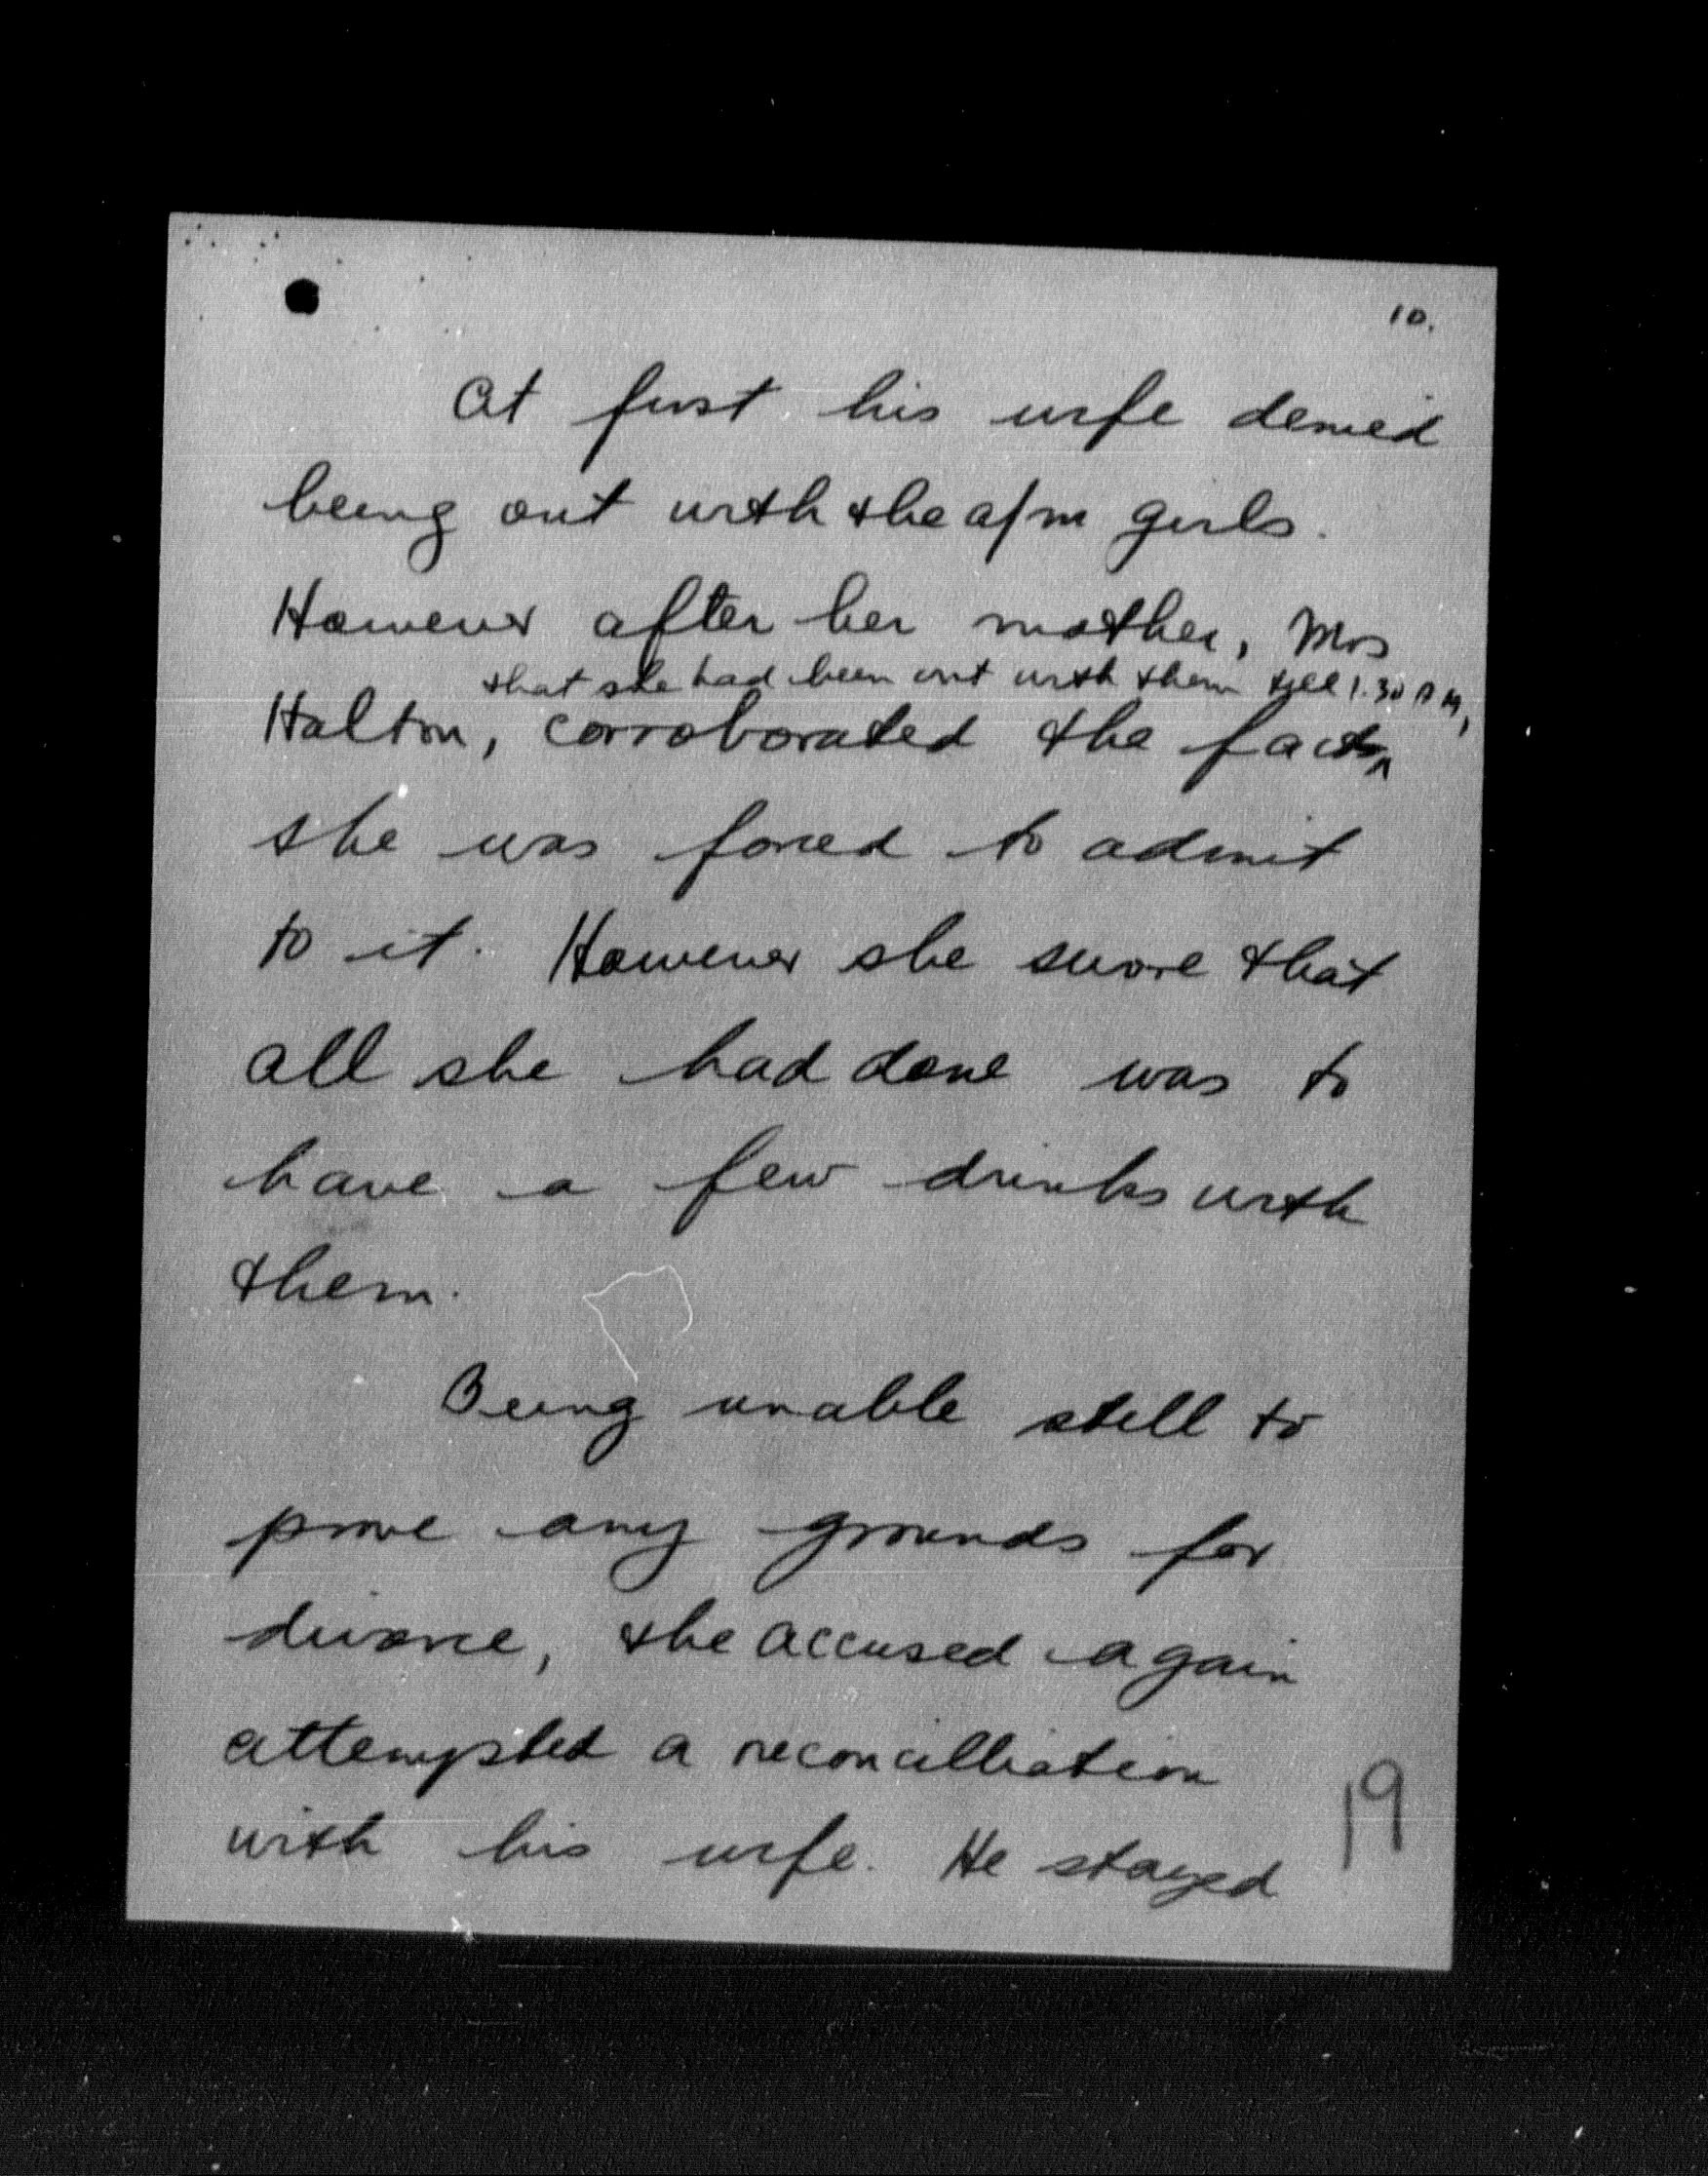 10.
At first his wife denied
being out with the a/m girls.
However after her mother, Mrs
that she had been out with them till 1.30 A M,
Halton, corroborated the facts
she was forced to admit
to it. However she swore that
all she had done was to
have a few drinks with
them.
Being unable still to
prove any grounds for
divorce, the accused again
attempted a reconcilliation
with his wife. He stayed
19